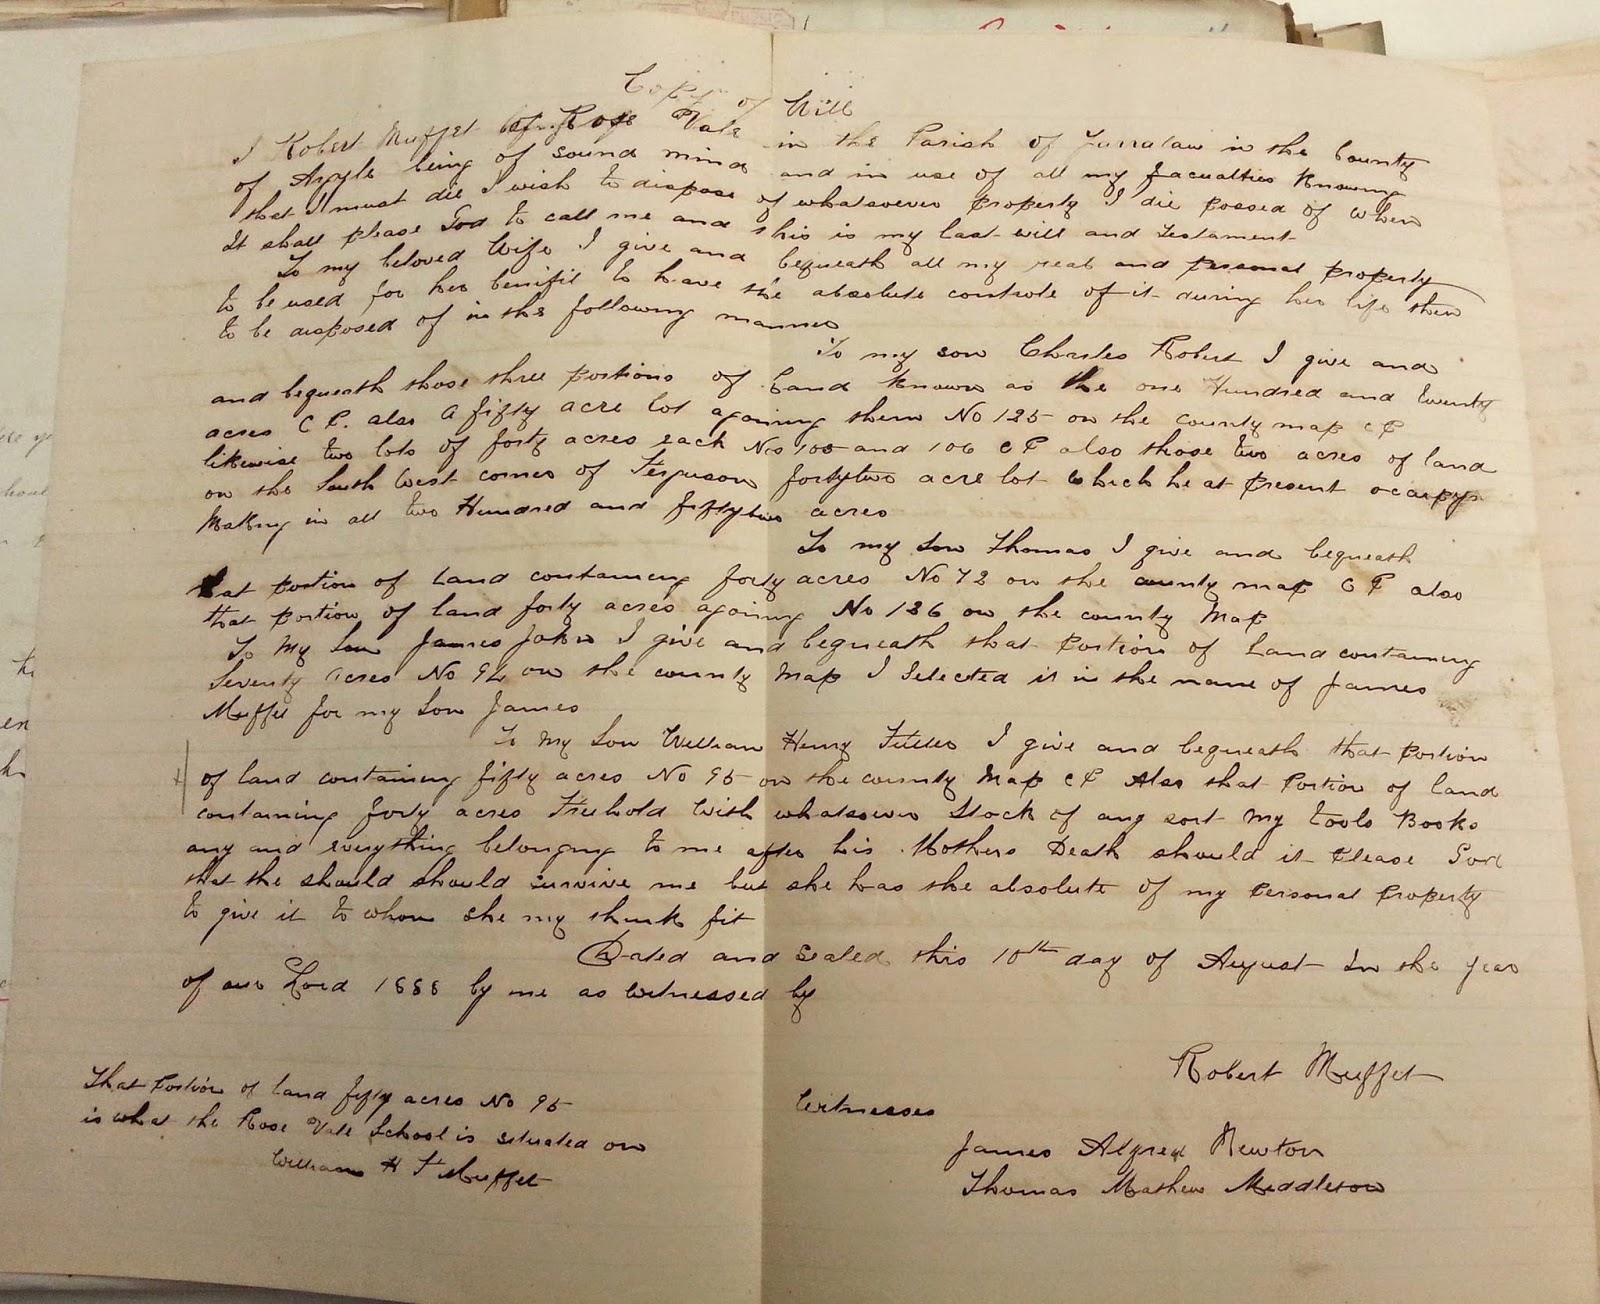 Copy of Will
I Robert Muffet of Rose Vale in the Parish of in the County
of Argyle being of sound mind and in use of all my facualties Knowing
that I must die I wish to dispose of whatsoever property I die possed of when
It shall please God to call me and this is my last will and testament
To my beloved Wife I give and bequeath all my real and personal property
to be used for her benifit to have the absolute controle of it during her life then
to be disposed of in the following manner
To my son Charles Robert I give and
and bequeath those three portions of Land Known as the one Hundred and twenty
acres C P. also a fifty acre lot agoining them No 125 on the county map C P
likewise two lots of forty acres each Nos 100 and 106 C P also those two acres of land
on the South West corner of Ferguson fortytwo acre lot which he at present ocacpys
Making in all two Hundred and fiftytwo acres
To my Son Thomas I give and bequeath
that portion of land containing forty acres No 72 on the county map C P also
that portion of land forty acres agoining No 126 on the county Map
To My Son James John I give and bequeath that portion of Land containing
Seventy acres No 92 on the county Map I Selected it in the name of James
Muffet for my Son James
To My Son William Henry I give and bequeath that portion
of land containing fifty acres No 95 on the county Map C P Also that Portion of land
containing forty acres Freehold With whatsoever Stock of any sort My tools Books
any and everything belonging to me after his Mothers Death should it Please God
that she should should survive me but she has the absolute of my personal property
to give it to whom she my think fit
Dated and sealed this 10th day of August In the year
of our Lord 1888 by me as witnessed by
Robert Muffet
Witnesses
James Alfred Newton
Thomas Mathew Middleton
That Portion of land fifty acres No 95
is what the Rose Vale School is situated on
William H F Muffet